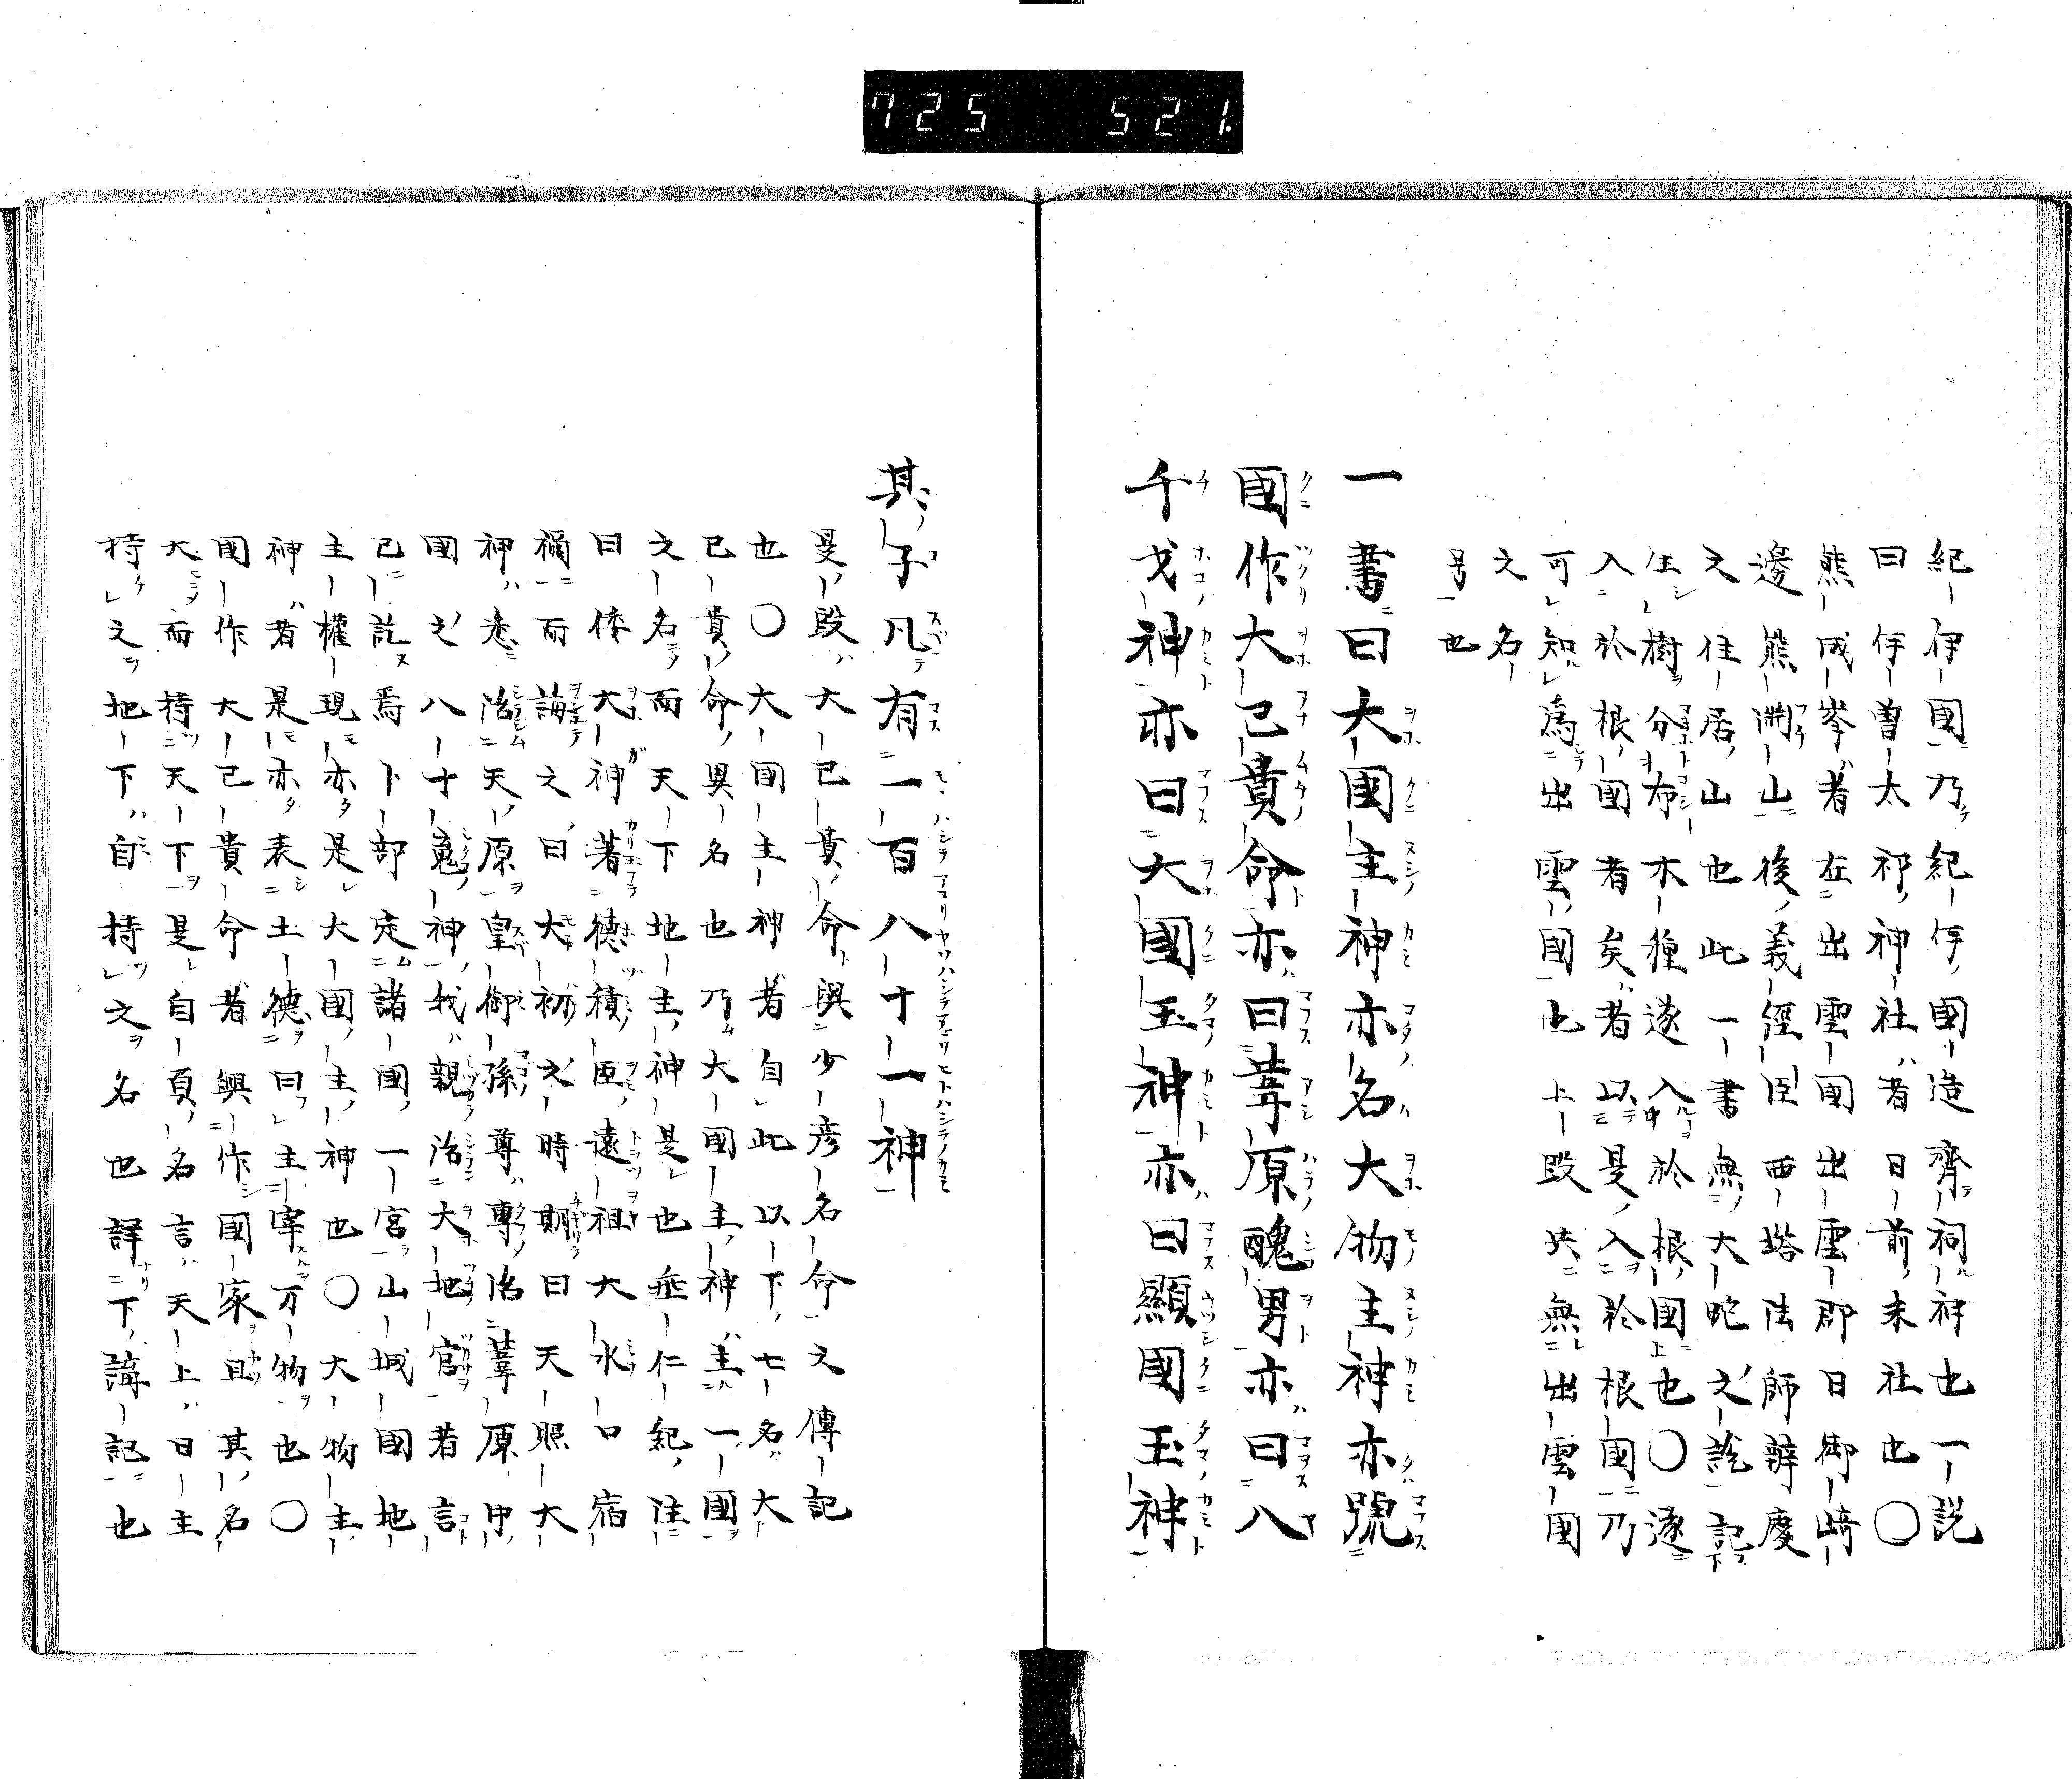 725 521.
紀伊國乃紀伊國造齋祠神也一説
曰伊曽太祁神社者日前末社也〇
熊成峯者在出雲國出雲郡日御﨑
邊熊渕山後義經臣西塔法師辨慶
之住居山也此一書無大虵之説記
生樹分布木種遂入於根國也〇遂
入於根國者矣者以是入於根國乃
可知爲出雲國也上段共無出雲國
之名
号也
一書曰大國主神亦名大物主神亦號
國作大己貴命亦曰葦原醜男亦曰八
千戈神亦曰大國玉神亦曰顯國玉神
其子凡有一百八十一神
是段大己貴命與少彦名命之傳記
也〇大國主神者自此以下七名大
已貴命異名也乃大國主神主一國
之名而天下地主神是也垂仁紀住
曰倭大神著穂積臣遠祖大水口宿
禰而誨之曰大初之時期曰天照大
神悉治天原皇御孫尊專治葦原中
國之八十䰟神我親治大地官者言
已訖焉卜部定諸國一宮山城國地
主權現亦是大國主神也〇大物主
神者是亦表土德曰主宰万物也〇
國作大己貴命者與作國家且其名
大而持天下是自負名言天上日主
持之地下自持之名也詳下講記也